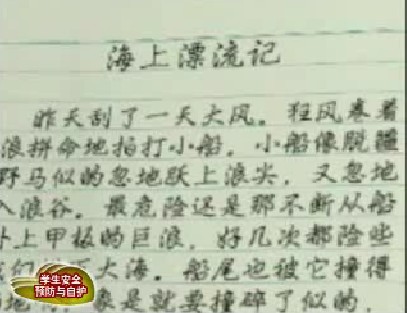 海上漂流记
昨天刮了一天大风。狂风卷着
浪拼命地拍打小船。小船像脱疆
野马似的忽地跃上浪尖，又忽地
入浪谷。最危险还是那不断从船
上甲板的巨浪，好几次都险些
们 大海。船尾也被它撞得
地 象是就要撞碎了似的，
学生安全
预防与自护